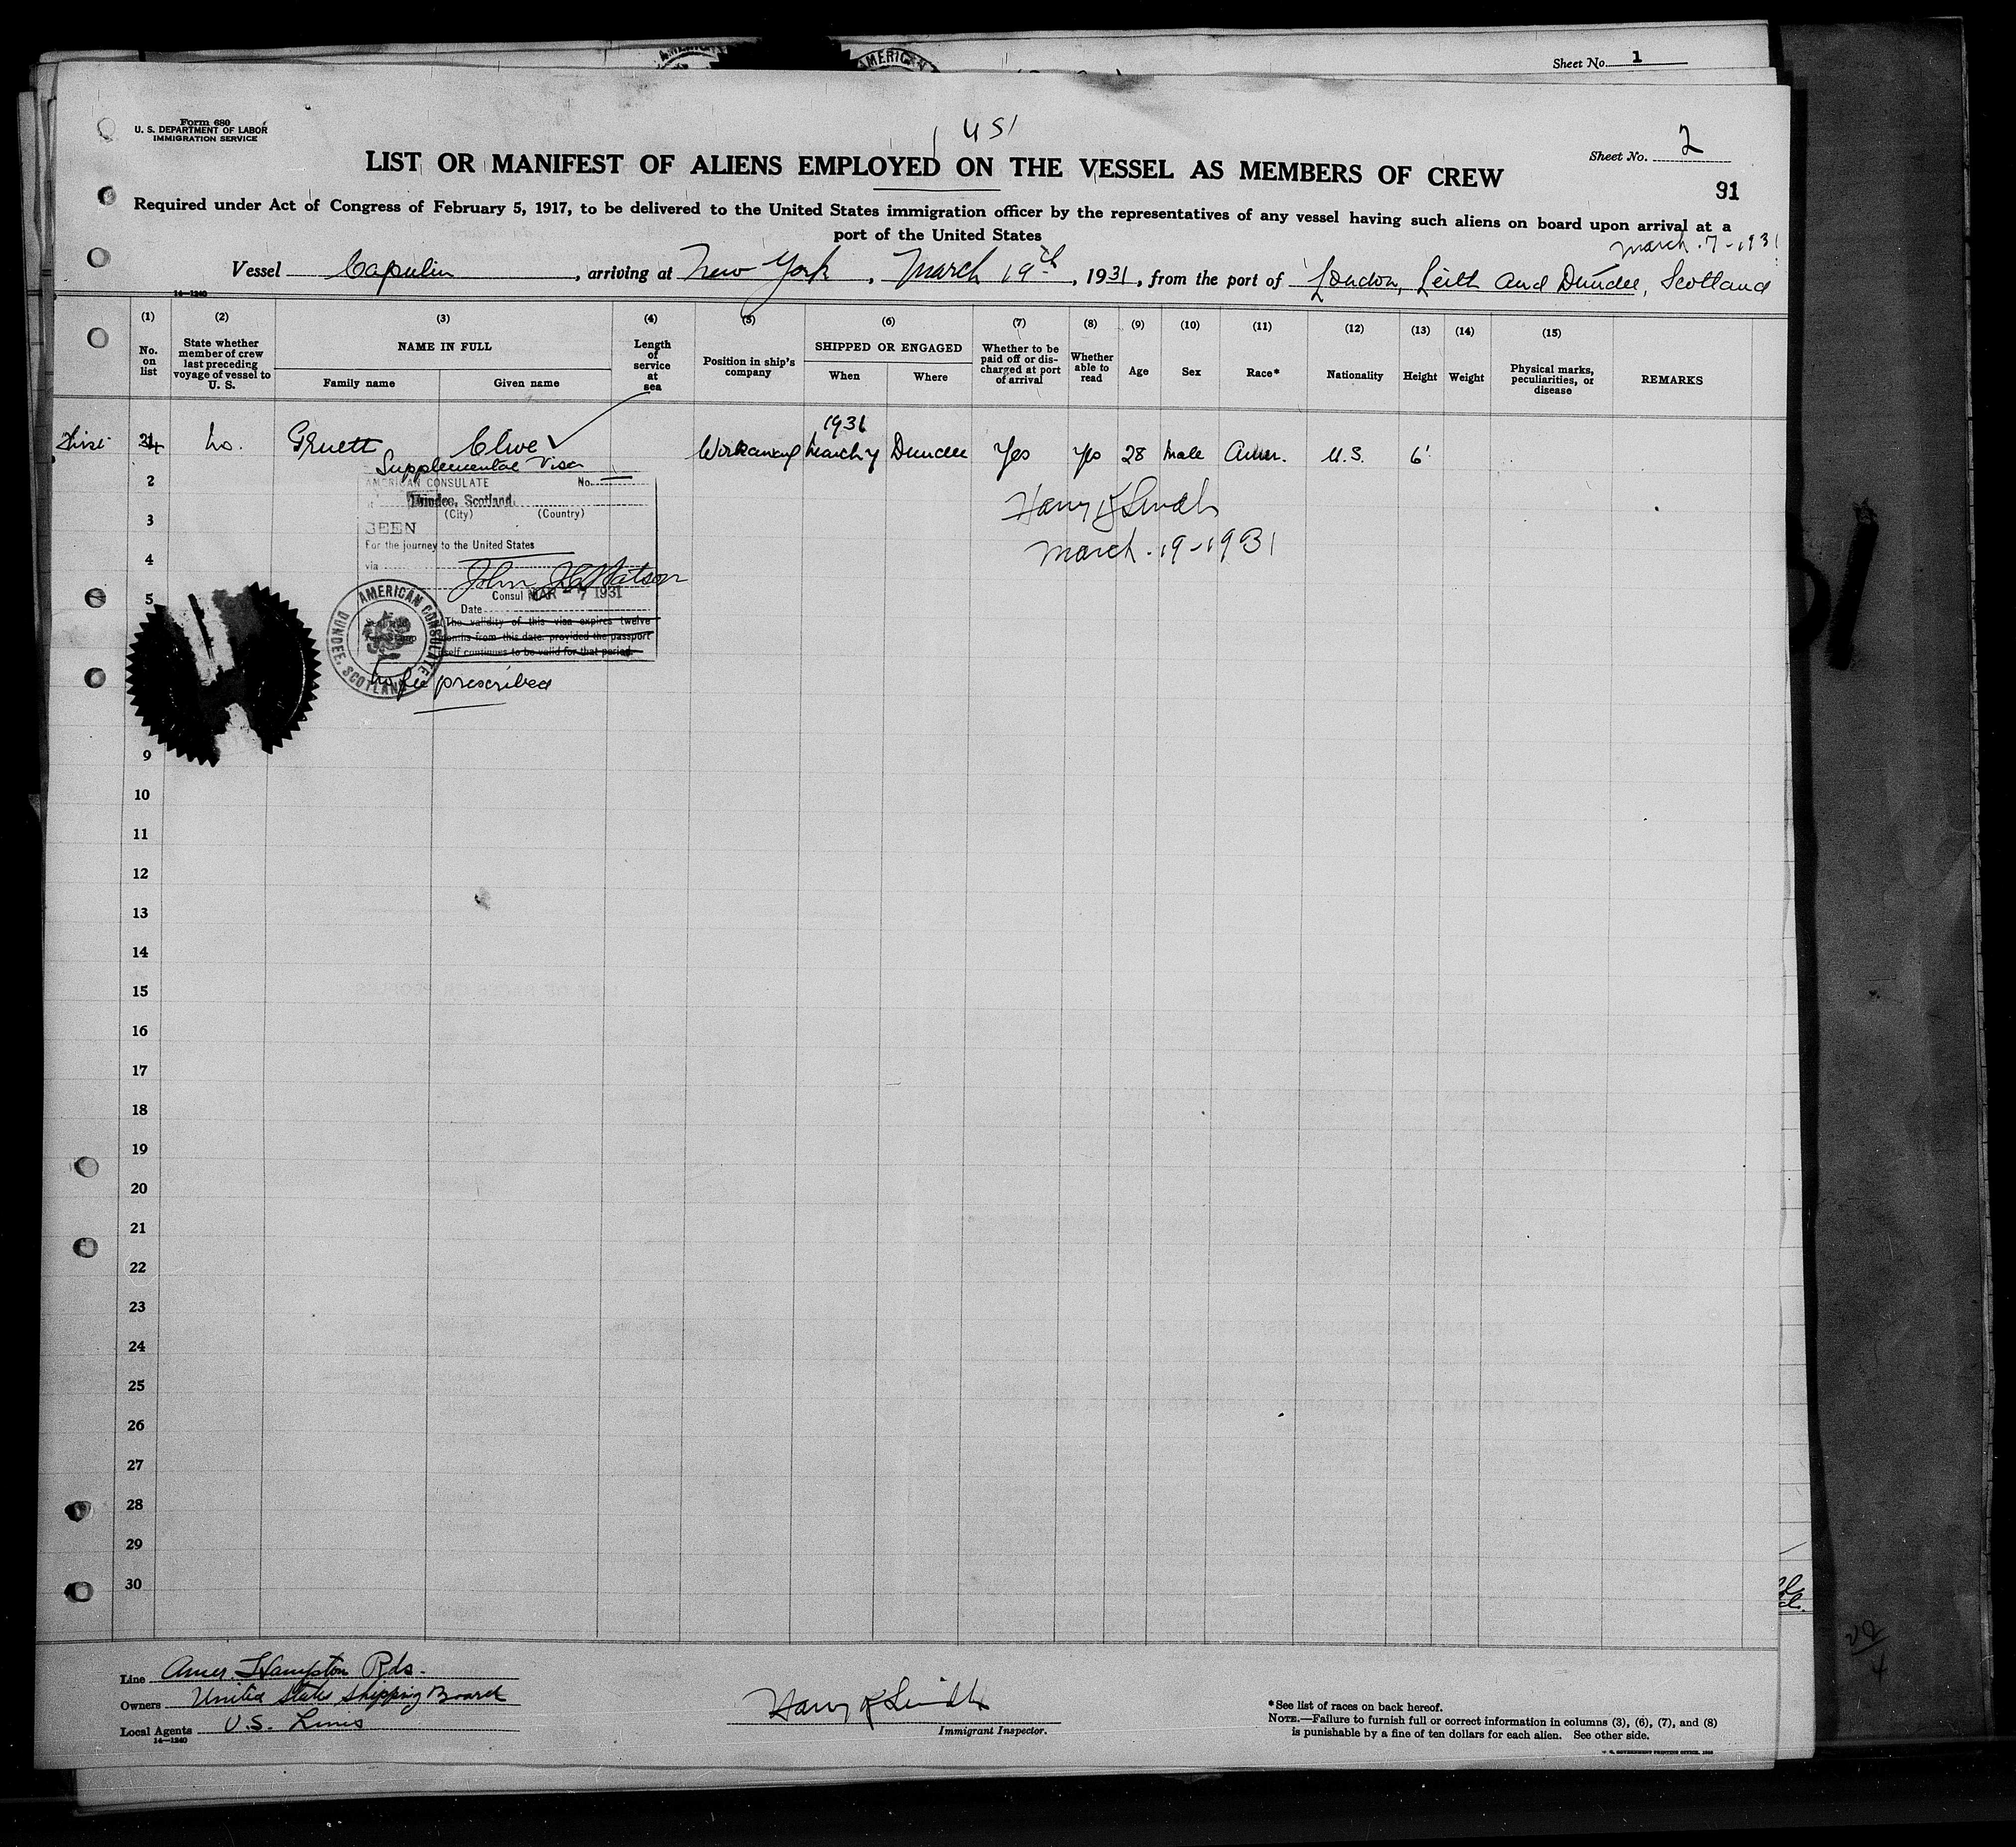 Sheet No. 1
Form 680
U. S. DEPARTMENT OF LABOR
IMMIGRATION SERVICE
1 US1
Sheet No. 2
LIST OR MANIFEST OF ALIENS EMPLOYED ON THE VESSEL AS MEMBERS OF CREW
91
Required under Act of Congress of February 5, 1917, to be delivered to the United States immigration officer by the representatives of any vessel having such aliens on board upon arrival at a
port of the United States
March. 7-1931
Vessel Capulin, arriving at New York, March 19th, 1931, from the port of London, Leith and Dundee, Scotland
14—1240
(1) (2) (3) (4) (5) (6) (7) (8) (9) (10) (11) (12) (13) (14) (15)
No. on list
State whether member of crew last preceding voyage of vessel to U. S.
NAME IN FULL
Family name Given name
Length of service at sea
Position in ship's company
SHIPPED OR ENGAGED
When Where
Whether to be paid off or discharged at port of arrival
Whether able to read
Age Sex Race* Nationality Height Weight
Physical marks, peculiarities, or disease
REMARKS
1931
No. Gruett Clive Workaway March 7 Dundee Yes Yes 28 Male Amer. U.S. 6'
Supplemental Visa
AMERICAN CONSULATE No.
Dundee, Scotland.
(City) (Country)
SEEN
For the journey to the United States
via
John J. C. Watson
Consul
MAR - 7 1931
Date
The validity of this visa expires twelve
months from this date provided the passport
itself continues to be valid for that period.
AMERICAN CONSULATE
DUNDEE, SCOTLAND
No fee prescribed
Harry K Smith
March-19-1931
2
3
4
5
9
10
11
12
13
14
15
16
17
18
19
20
21
22
23
24
25
26
27
28
29
30
Line Amer. Hampton Rds.
Owners United States Shipping Board
Local Agents U.S. Lines
14—1240
Harry K Smith
Immigrant Inspector.
*See list of races on back hereof.
NOTE.—Failure to furnish full or correct information in columns (3), (6), (7), and (8)
is punishable by a fine of ten dollars for each alien. See other side.